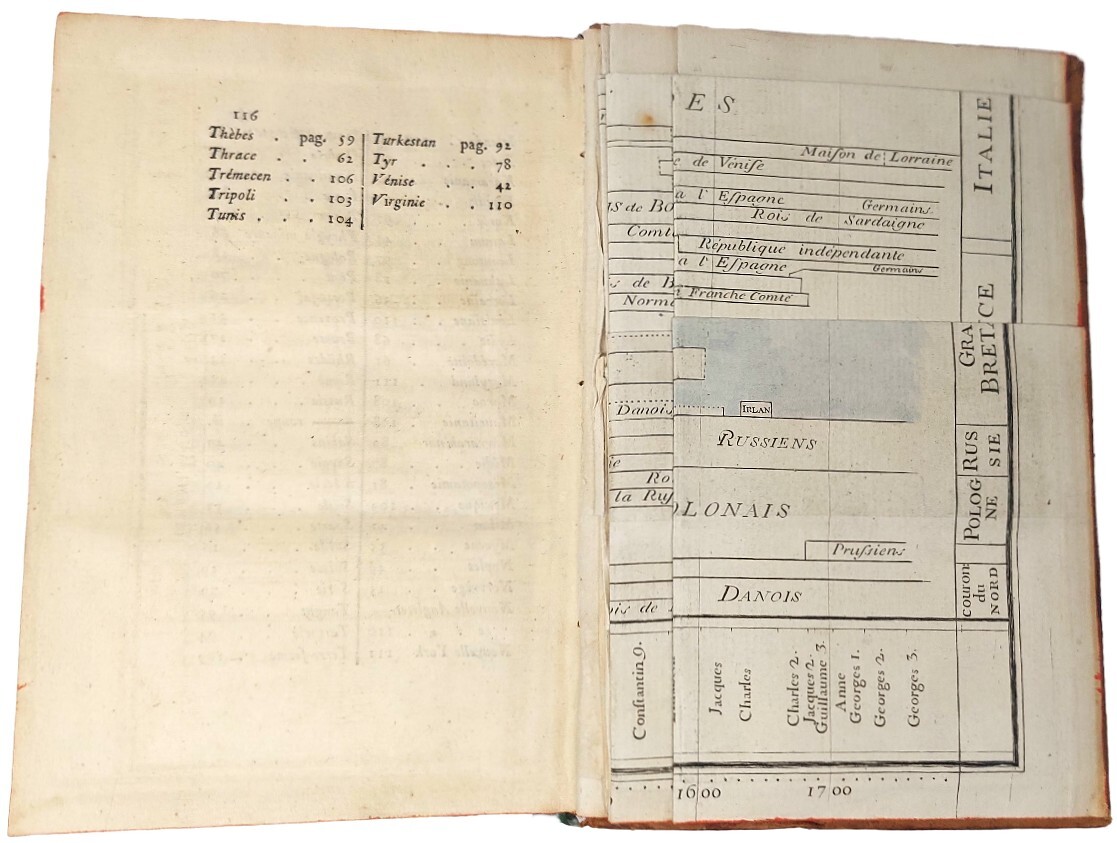 116
Thèbes . pag. 59
Thrace . . 62
Trémecen . . 106
Tripoli . . 103
Tunis . . . 104
Turkestan pag. 92
Tyr . . . 78
Vénise . . 42
Virginie . . 110
ES
ITALIE
Maiſon de Lorraine
e de Véniſe
a l' Eſpagne Germains
Rois de Sardaigne
is de Bo
Comt
République indépendante
a l' Eſpagne Germains
s de B
Franche Comté
Norm
GRA
BRETACE
Danois
IRLAN
RUSSIENS
RUS
SIE
ie
Ro
la Ruſ
OLONAIS
POLOG
NE
Pruſsiens
DANOIS
couron
du
NORD
ois de
Conſtantin 9.
Jacques
Charles
Charles 2.
Jacques 2.
Guillaume 3.
Anne
Georges 1.
Georges 2.
Georges 3.
1600
1700